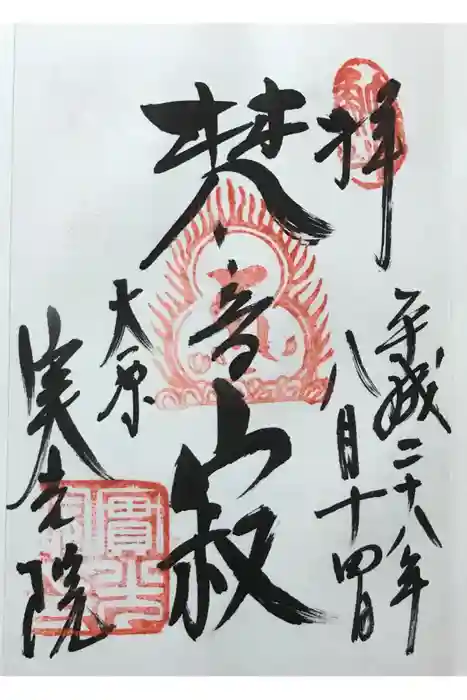 拝
平成二十八年
八月十四日
梵音寂
大原
実光院
實光